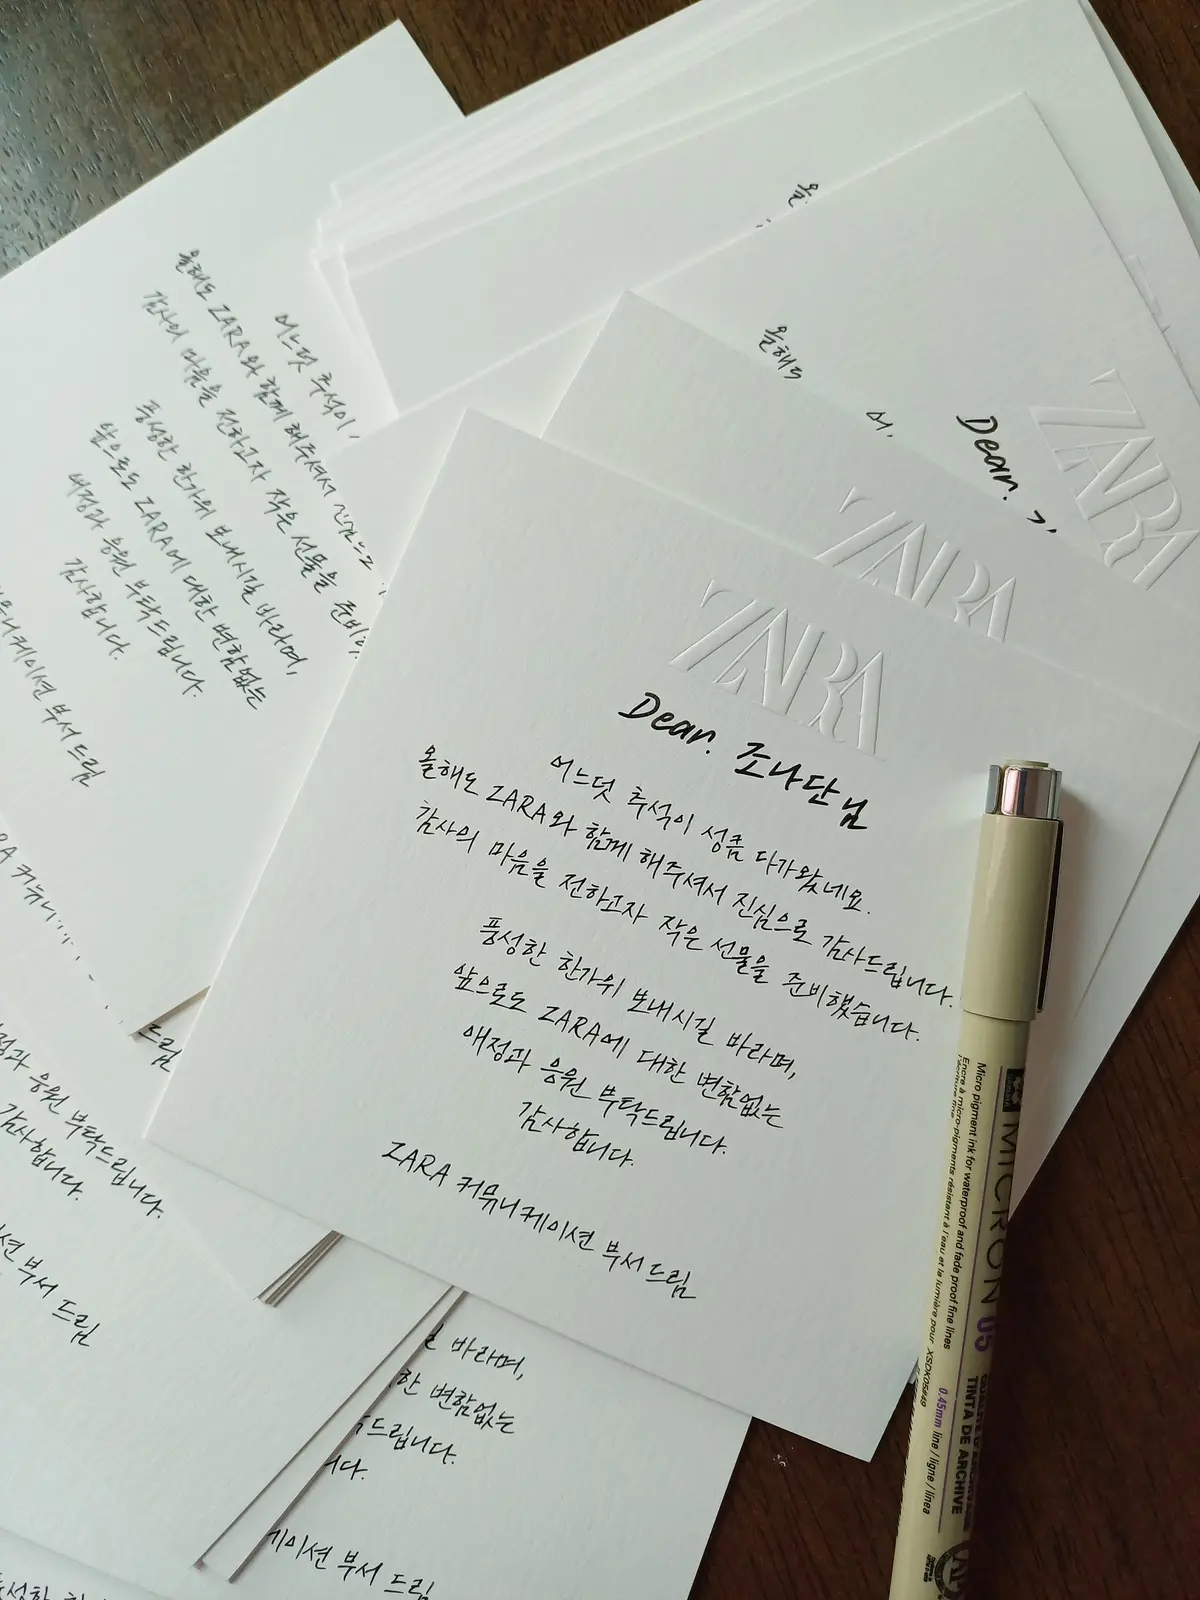 올해도 ZARA와 함께 해주셔서
감사의 마음을 전하고자 작은 선물을
풍성한 한가위 보내시길 바라며,
앞으로도 ZARA에 대한 변함없는
애정과 응원 부탁드립니다.
감사합니다.
부서 드림
Dear.
ZARA
ZARA
ZARA
Dear. 조나단님
어느덧 추석이 성큼 다가왔네요.
올해도 ZARA와 함께 해주셔서 진심으로 감사드립니다.
감사의 마음을 전하고자 작은 선물을 준비했습니다.
풍성한 한가위 보내시길 바라며,
앞으로도 ZARA에 대한 변함없는
애정과 응원 부탁드립니다.
감사합니다.
ZARA 커뮤니케이션 부서 드림
응원 부탁드립니다.
감사합니다.
부서 드림
바라며,
변함없는
부서 드림
MICRON 05
Micro pigment ink for waterproof and fade proof fine lines
Encre à micro-pigments résistant à l'eau et la lumière pour
XSDK05#49
0.45mm line / ligne / línea
TINTA DE ARCHIVE